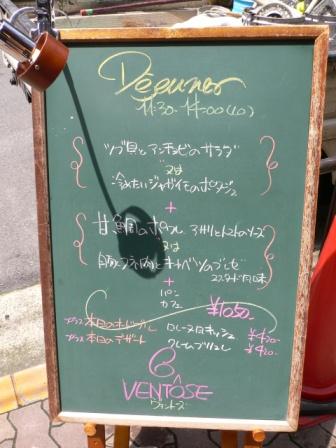 Déjeuner
11:30-14:00(LO)
ツブ貝とアンチョビのサラダ
又は
冷めたいジャガイモのポタージュ
+
甘鯛のポワレ アサリとトマトのソース
又は
豚バラ肉とキャベツのブレゼ
マスタード風味
+
パン
カフェ
¥1050-
プラス 本日のオードブル ロレーヌ風キッシュ ¥420-
プラス 本日のデザート クレームブリュレ ¥420-
6
VENTÔSE
ヴァントーズ